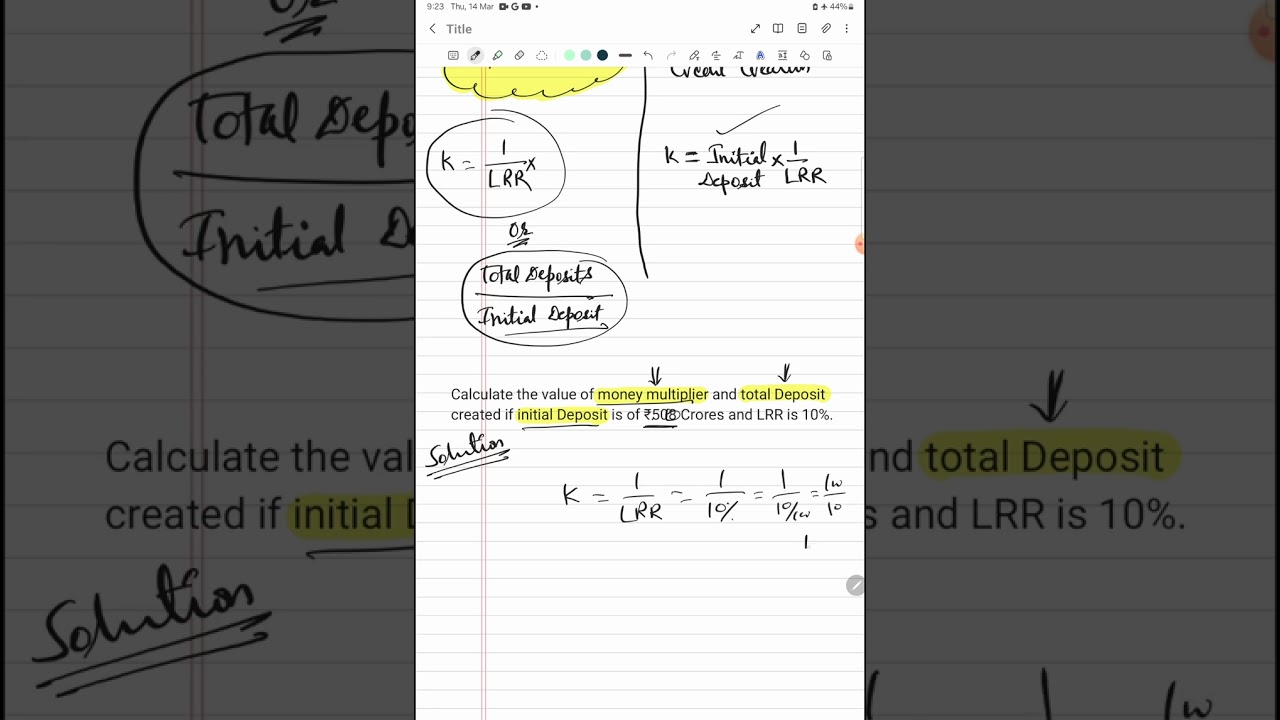 9:23 Thu, 14 Mar
44%
Title
Credit Creation
K = 1/LRR x
Or
Total Deposits
Initial Deposit
K = Initial Deposit x 1/LRR
Calculate the value of money multiplier and total Deposit
created if initial Deposit is of Crores and LRR is 10%.
Solution
K = 1/LRR = 1/10% = 1/10/100 = 100/10
1
Or
Total Depo
Initial De
Calculate the val
and total Deposit
created if initial D
s and LRR is 10%.
Solution